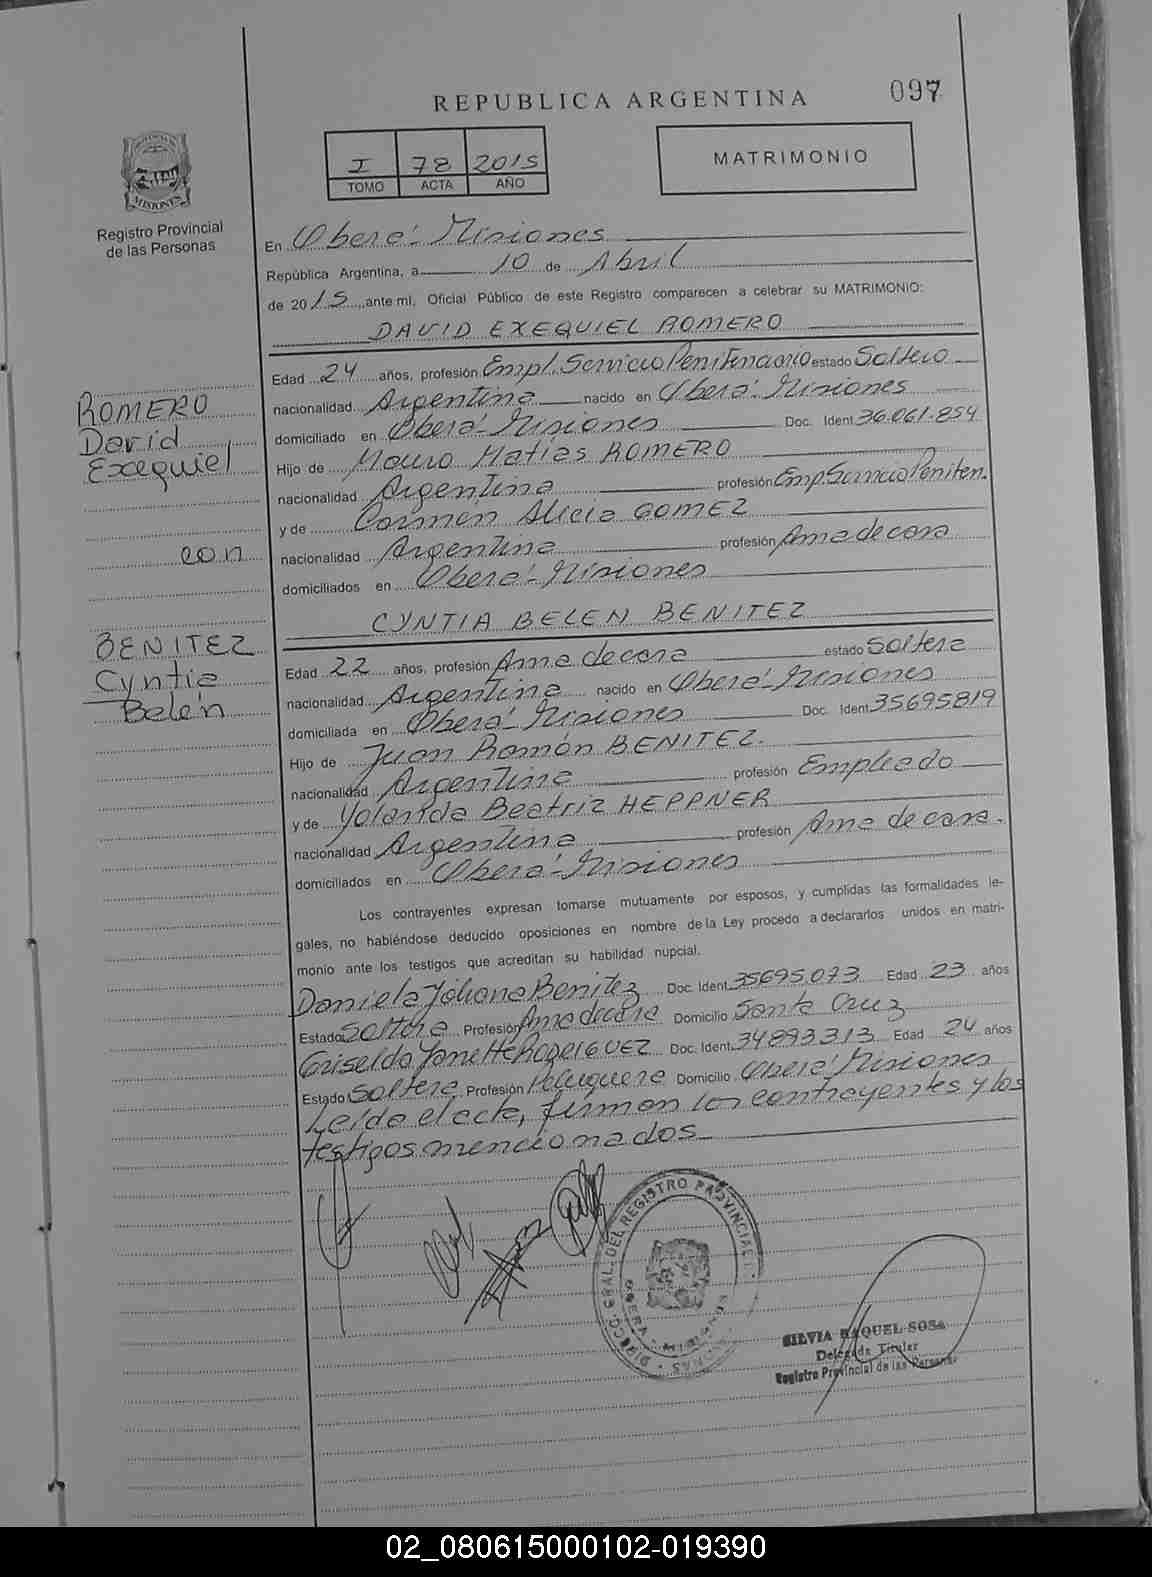 REPUBLICA ARGENTINA
097
I 78 2015
TOMO ACTA AÑO
MATRIMONIO
MISIONES
Registro Provincial
de las Personas
En Oberá-Misiones
República Argentina, a 10 de Abril
de 2015 ante mí, Oficial Público de este Registro comparecen a celebrar su MATRIMONIO:
DAVID EXEQUIEL ROMERO
Edad 24 años, profesión Empl. Servicio Penitenciario estado Soltero
nacionalidad Argentina nacido en Oberá-Misiones
domiciliado en Oberá-Misiones Doc. Ident 36.061.854
Hijo de Mauro Matias ROMERO
nacionalidad Argentina profesión Emp. Servicio Peniten.
y de Carmen Alicia GOMEZ
nacionalidad Argentina profesión Ama de casa
domiciliados en Oberá-Misiones
ROMERO
David
Exequiel
con
BENITEZ
Cyntia
Belén
CYNTIA BELEN BENITEZ
Edad 22 años, profesión Ama de casa estado Soltera
nacionalidad Argentina nacido en Oberá-Misiones
domiciliada en Oberá-Misiones Doc. Ident 35695819
Hijo de Juan Ramón BENITEZ.
nacionalidad Argentina profesión Empleado
y de Yolanda Beatriz HEPPNER
nacionalidad Argentina profesión Ama de casa.
domiciliados en Oberá-Misiones
Los contrayentes expresan tomarse mutuamente por esposos, y cumplidas las formalidades le-
gales, no habiéndose deducido oposiciones en nombre de la Ley procedo a declararlos unidos en matri-
monio ante los testigos que acreditan su habilidad nupcial.
Daniela Johana Benitez Doc. Ident. 35695.073 Edad 23 años
Estado Soltera Profesión Ama de casa Domicilio Santa Cruz
Griselda Janette RODRIGUEZ Doc. Ident. 34893313 Edad 24 años
Estado Soltera Profesión Peluquera Domicilio Oberá Misiones
Leída el acta, firman los contrayentes y los
testigos mencionados
DIRECC. GRAL. DEL REGISTRO PROVINCIAL
OBERA - MISIONES
SILVIA RAQUEL SOSA
Delegada Titular
Registro Provincial de las Personas
02_080615000102-019390